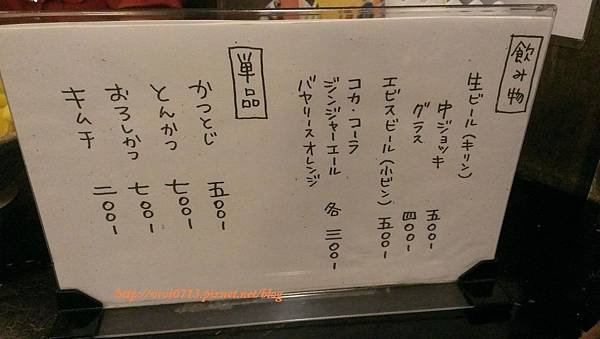 飲み物
生ビール(キリン)
中ジョッキ 五〇〇ー
グラス 四〇〇ー
エビスビール(小ビン) 五〇〇ー
コカ・コーラ
ジンジャーエール
バヤリースオレンジ 各 三〇〇ー
単品
かつとじ 五〇〇ー
とんかつ 七〇〇ー
おろしかつ 七〇〇ー
キムチ 二〇〇ー